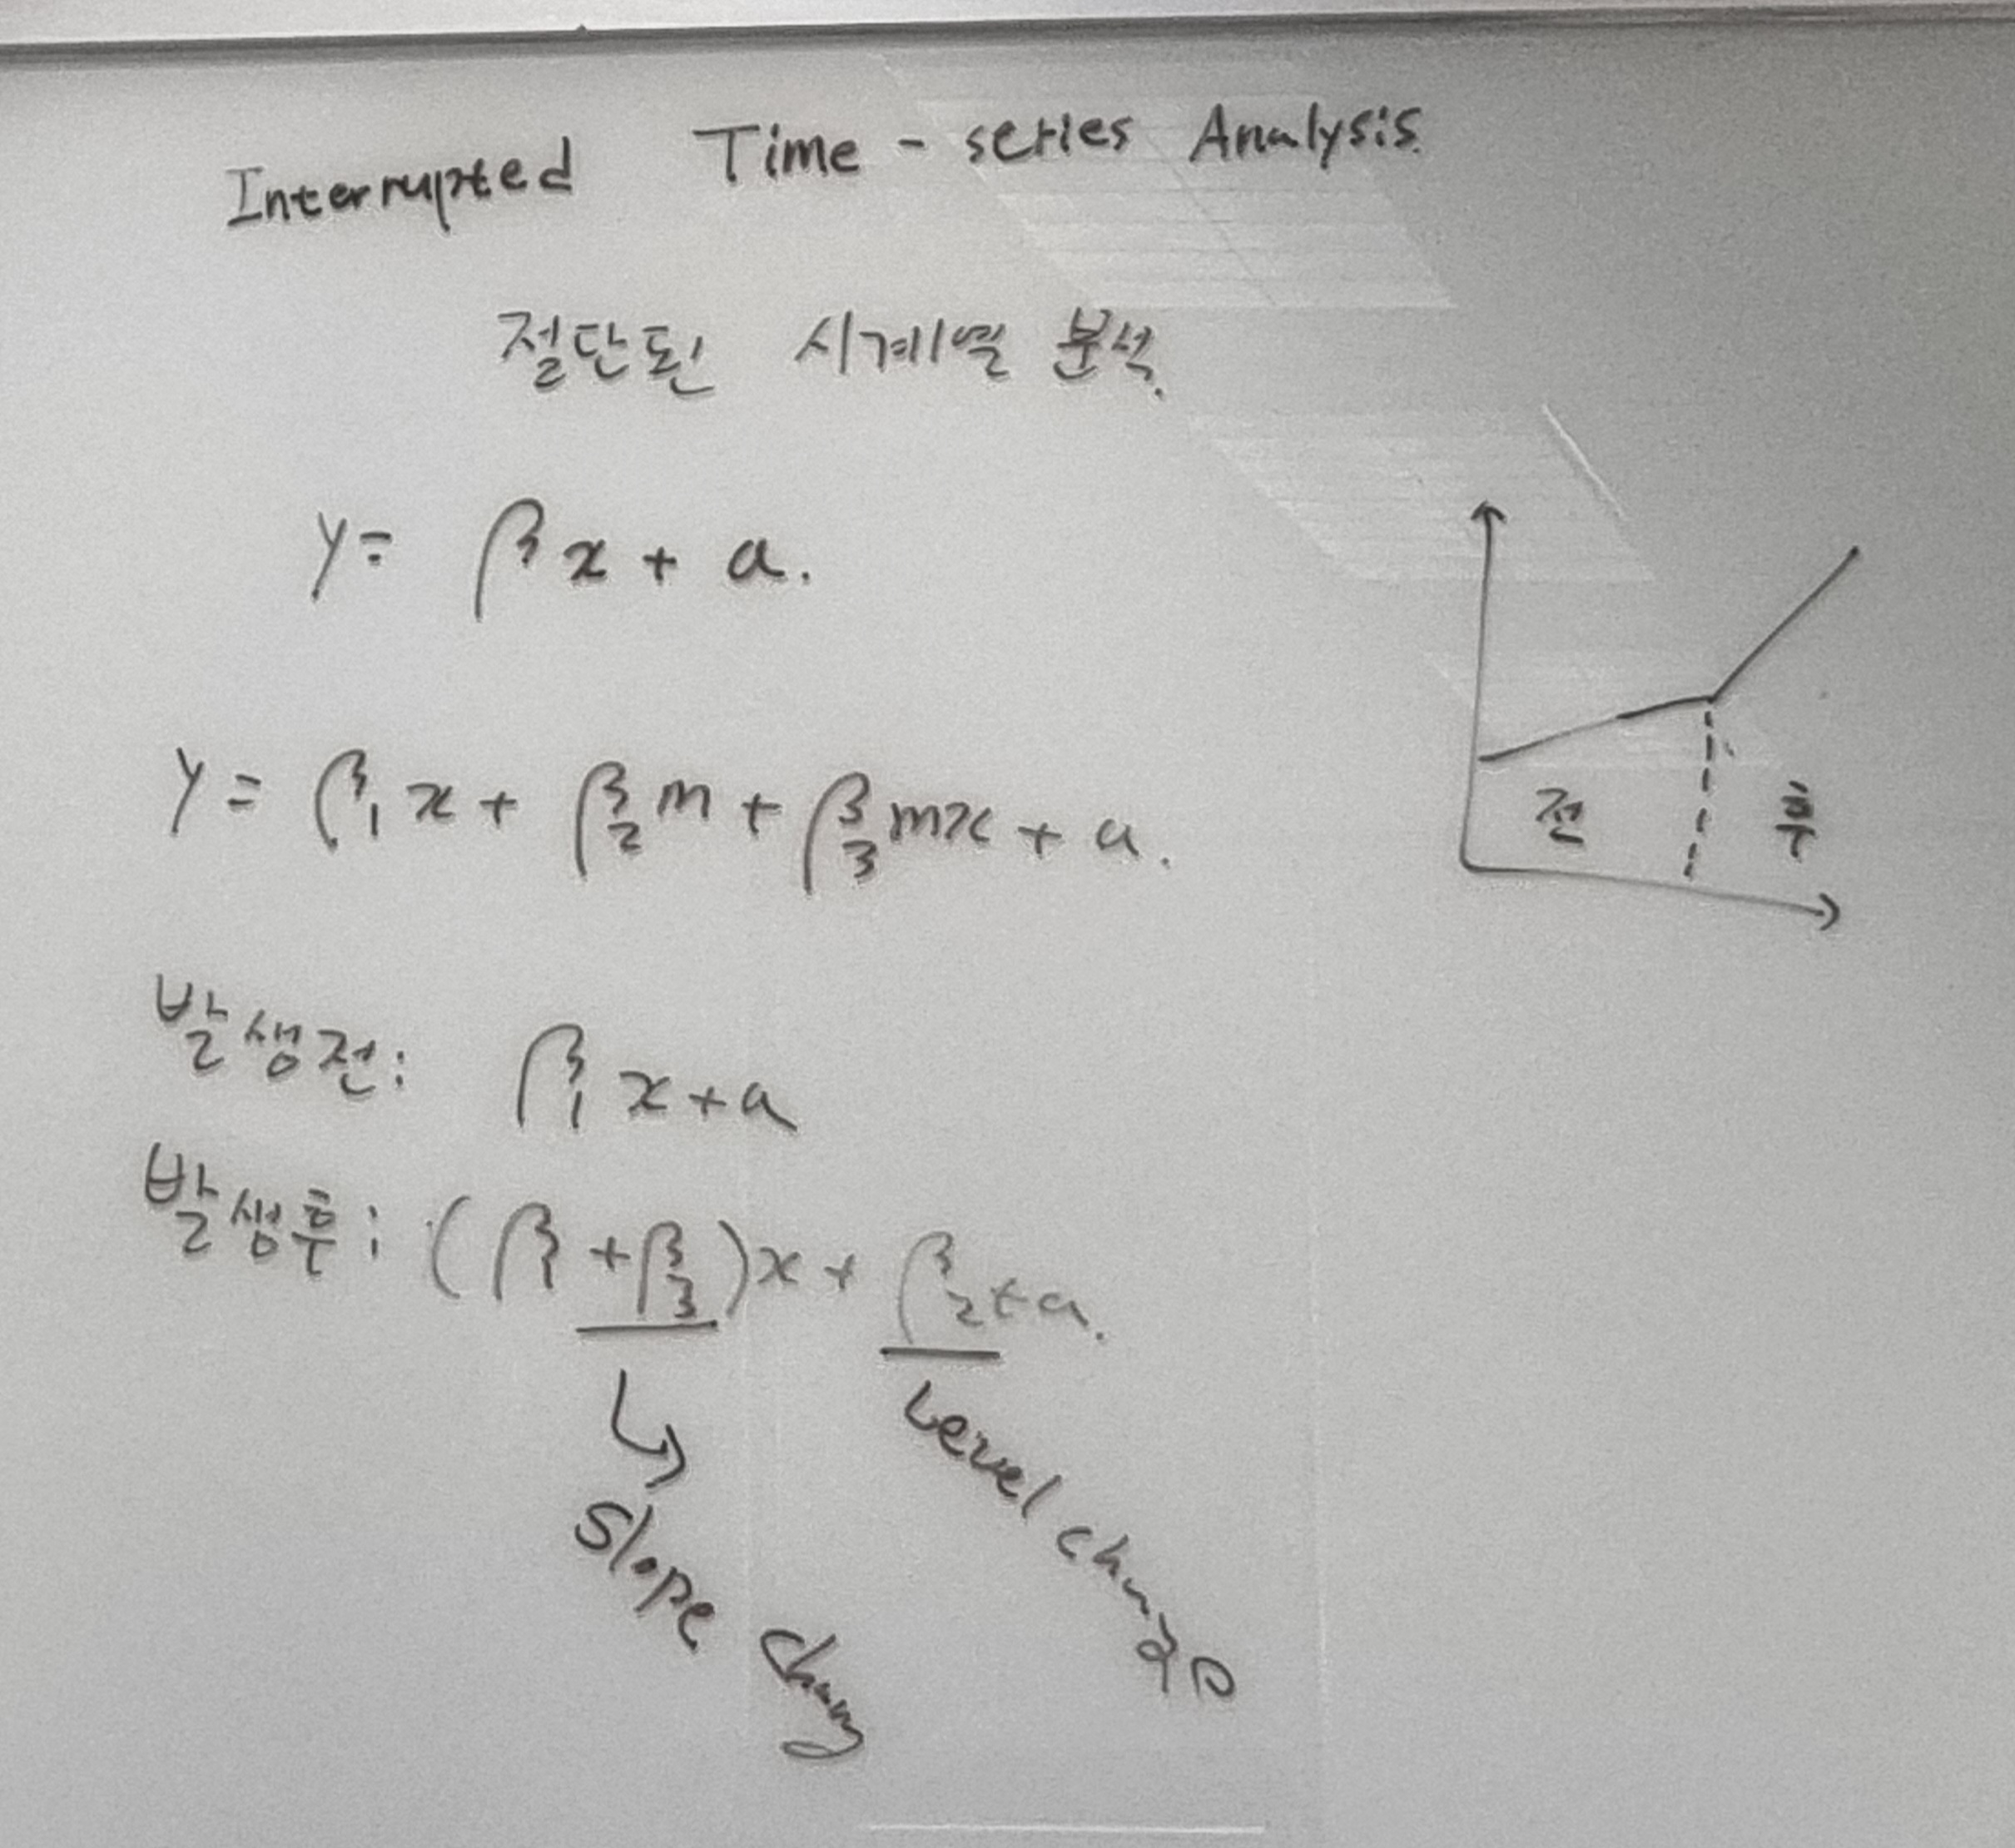 Interrupted Time - series Analysis.
절단된 시계열 분석.
y = βx + a.
y = β₁x + β₂m + β₃mx + a.
전 후
발생전: β₁x + a
발생후: (β₁ + β₃)x + β₂ + a.
↳
Level change
Slope chang